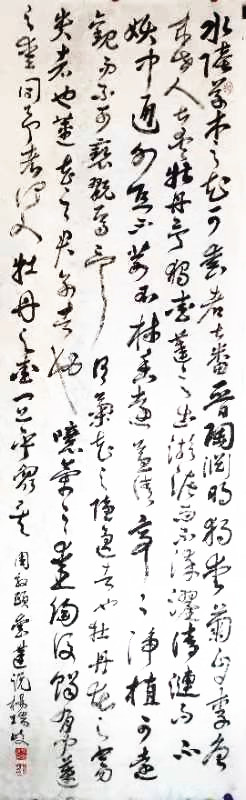 水陸草木之花可愛者甚蕃晉陶淵明獨愛菊自李唐
來世人甚愛牡丹予獨愛蓮之出淤泥而不染濯清漣而不
妖中通外直不蔓不枝香遠益清亭亭淨植可遠
觀而不可褻翫焉予謂菊花之隱逸者也牡丹花之富
貴者也蓮花之君子者也噫菊之愛陶後鮮有聞蓮
之愛同予者何人牡丹之愛宜乎眾矣
周敦頤愛蓮說楊